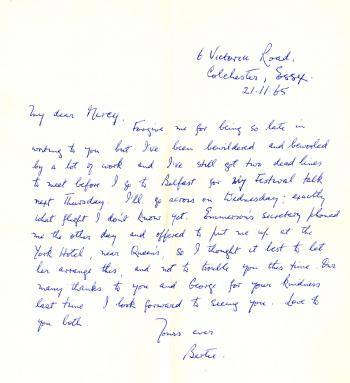 6 Victoria Road,
Colchester, Essex.
21.11.65
My dear Mercy,
Forgive me for being so late in
writing to you but I've been bewildered and
by a lot of work and I've still got two dead lines
to meet before I go to Belfast for my Festival talk
next Thursday. I'll go across on Wednesday; exactly
what flight I don't know yet. Emmerson's secretary phoned
me the other day and offered to put me up at the
York Hotel, near Queen's, so I thought it best to let
her arrange this, and not to trouble you this time. But
many thanks to you and George for your kindness
last time. I look forward to seeing you. Love to
you both.
Yours ever
Bertie.